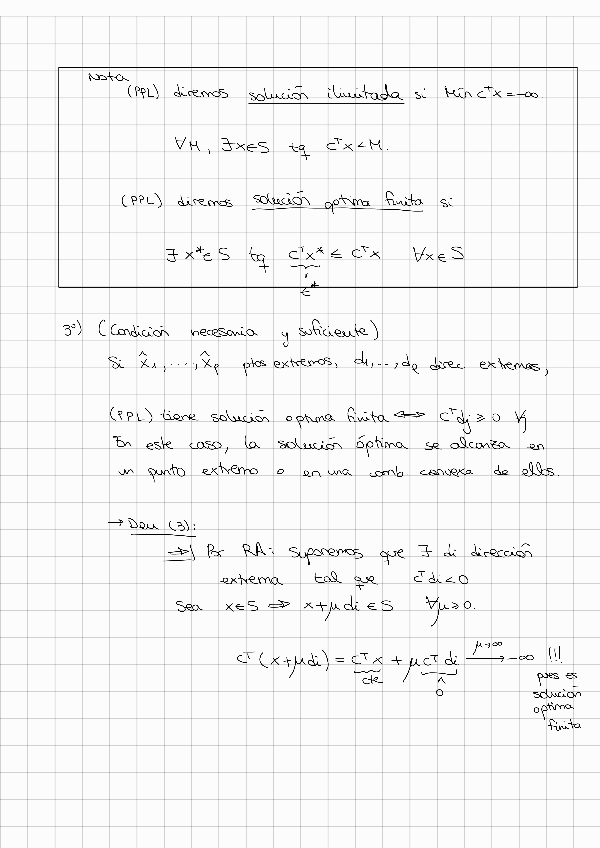 Nota
(PPL) diremos solución ilimitada si Min cᵀx = -∞.
∀M, ∃x∈S tq cᵀx < M.
(PPL) diremos solución optima finita si
∃ x* ∈ S tq cᵀx* ≤ cᵀx ∀x∈S
3º) (Condición necesaria y suficiente)
Si x̂₁, ..., x̂ₚ ptos extremos, d₁, ..., dₑ direc extremas,
(PPL) tiene solución optima finita ⟺ cᵀdj ≥ 0 ∀j
En este caso, la solución óptima se alcanza en
un punto extremo o en una comb convexa de ellos.
→ Dem (3):
⇒| Por RA: Suponemos que ∃ di dirección
extrema tal que cᵀdi < 0
Sea x∈S ⇒ x+μdi ∈ S ∀μ ≥ 0.
cᵀ(x+μdi) = cᵀx + μcᵀdi ⟶ -∞ !!!
μ→∞
cte
^
0
pues es
solución
optima
finita